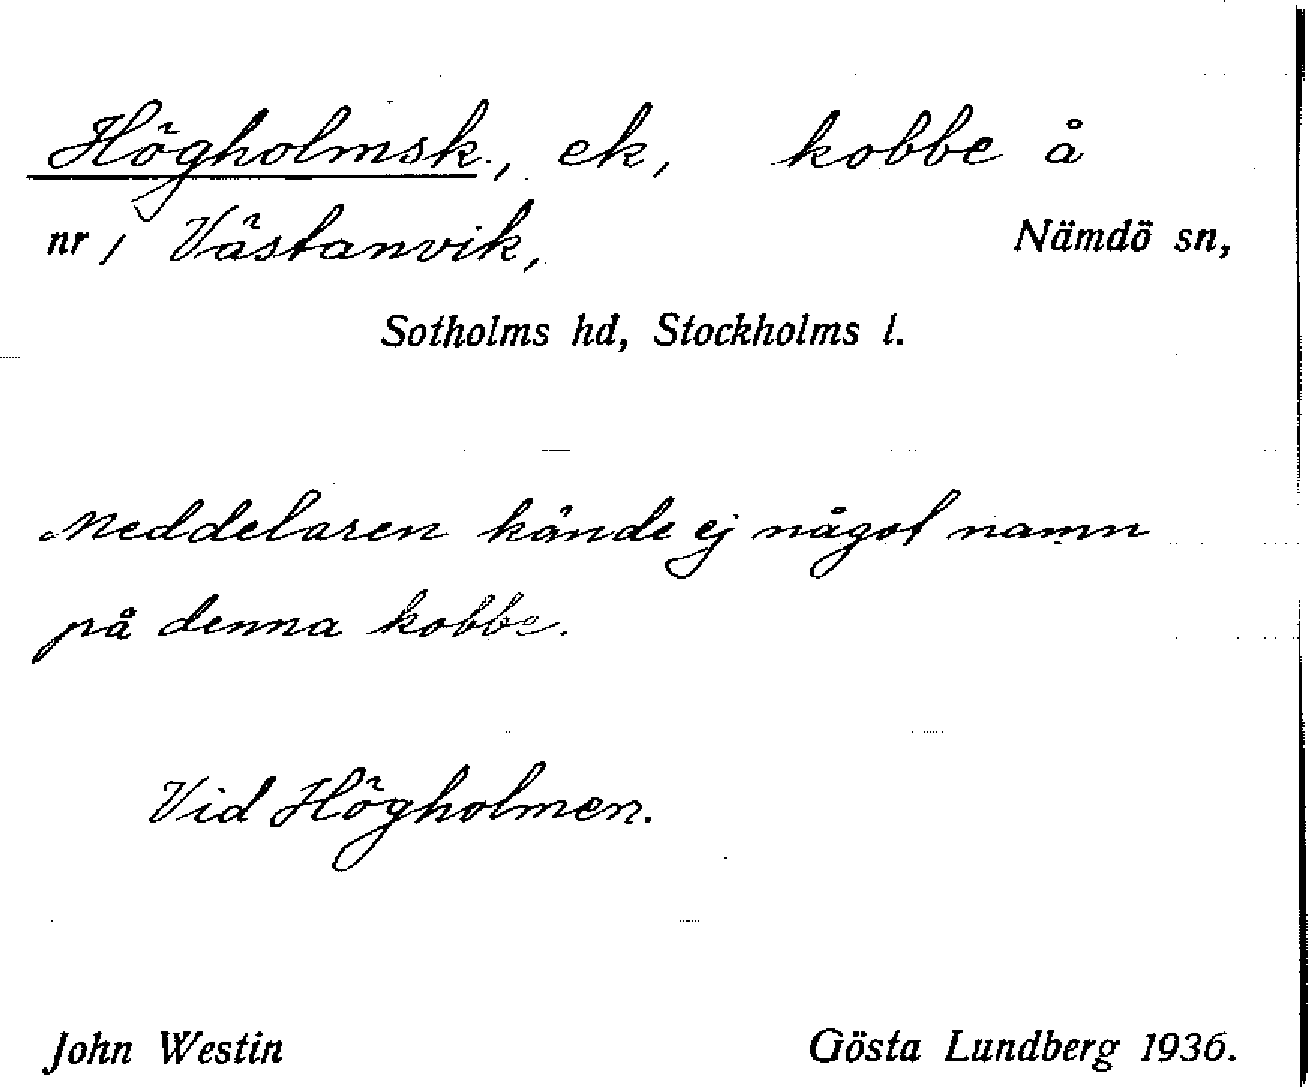 Högholmsk., ek, kobbe å
nr 1 Västanvik, Nämdö sn,
Sotholms hd, Stockholms l.
Meddelaren kände ej något namn
på denna kobbe.
Vid Högholmen.
John Westin Gösta Lundberg 1936.